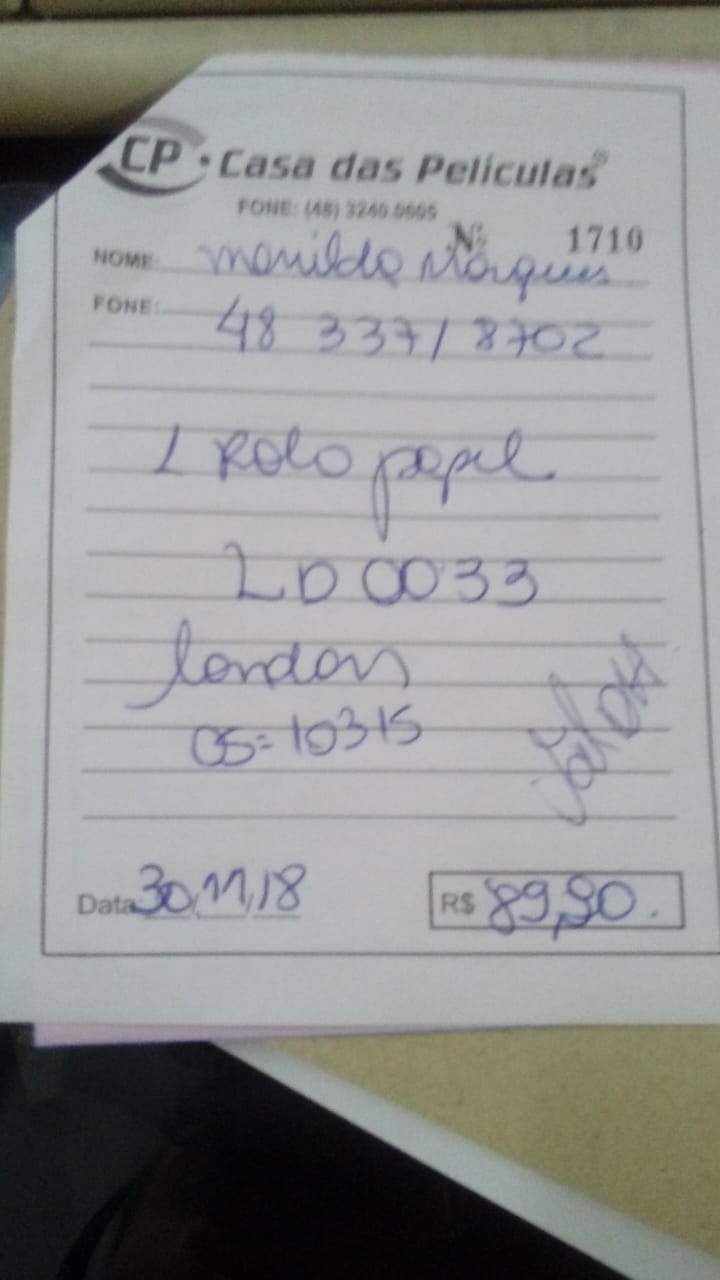 CP · Casa das Películas®
FONE: (48) 3240.0605
Nº 1710
NOME: Marques
FONE: 48 33718702
1 Rolo papel
LD 0033
london
OS = 10315
Data 30,11,18 R$ 89,90.